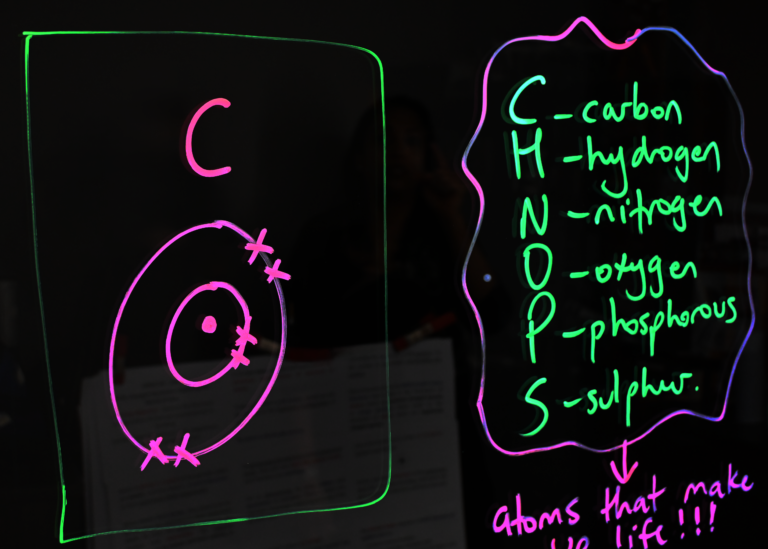 C
C - carbon
H - hydrogen
N - nitrogen
O - oxygen
P - phosphorous
S - sulphur.
atoms that make
up life!!!